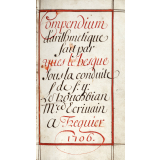 Compendium
d'arithmetique
fait par
yues le besque
sous la conduite
de s.r
Mtre Ecriuain
A Treguier
1706.